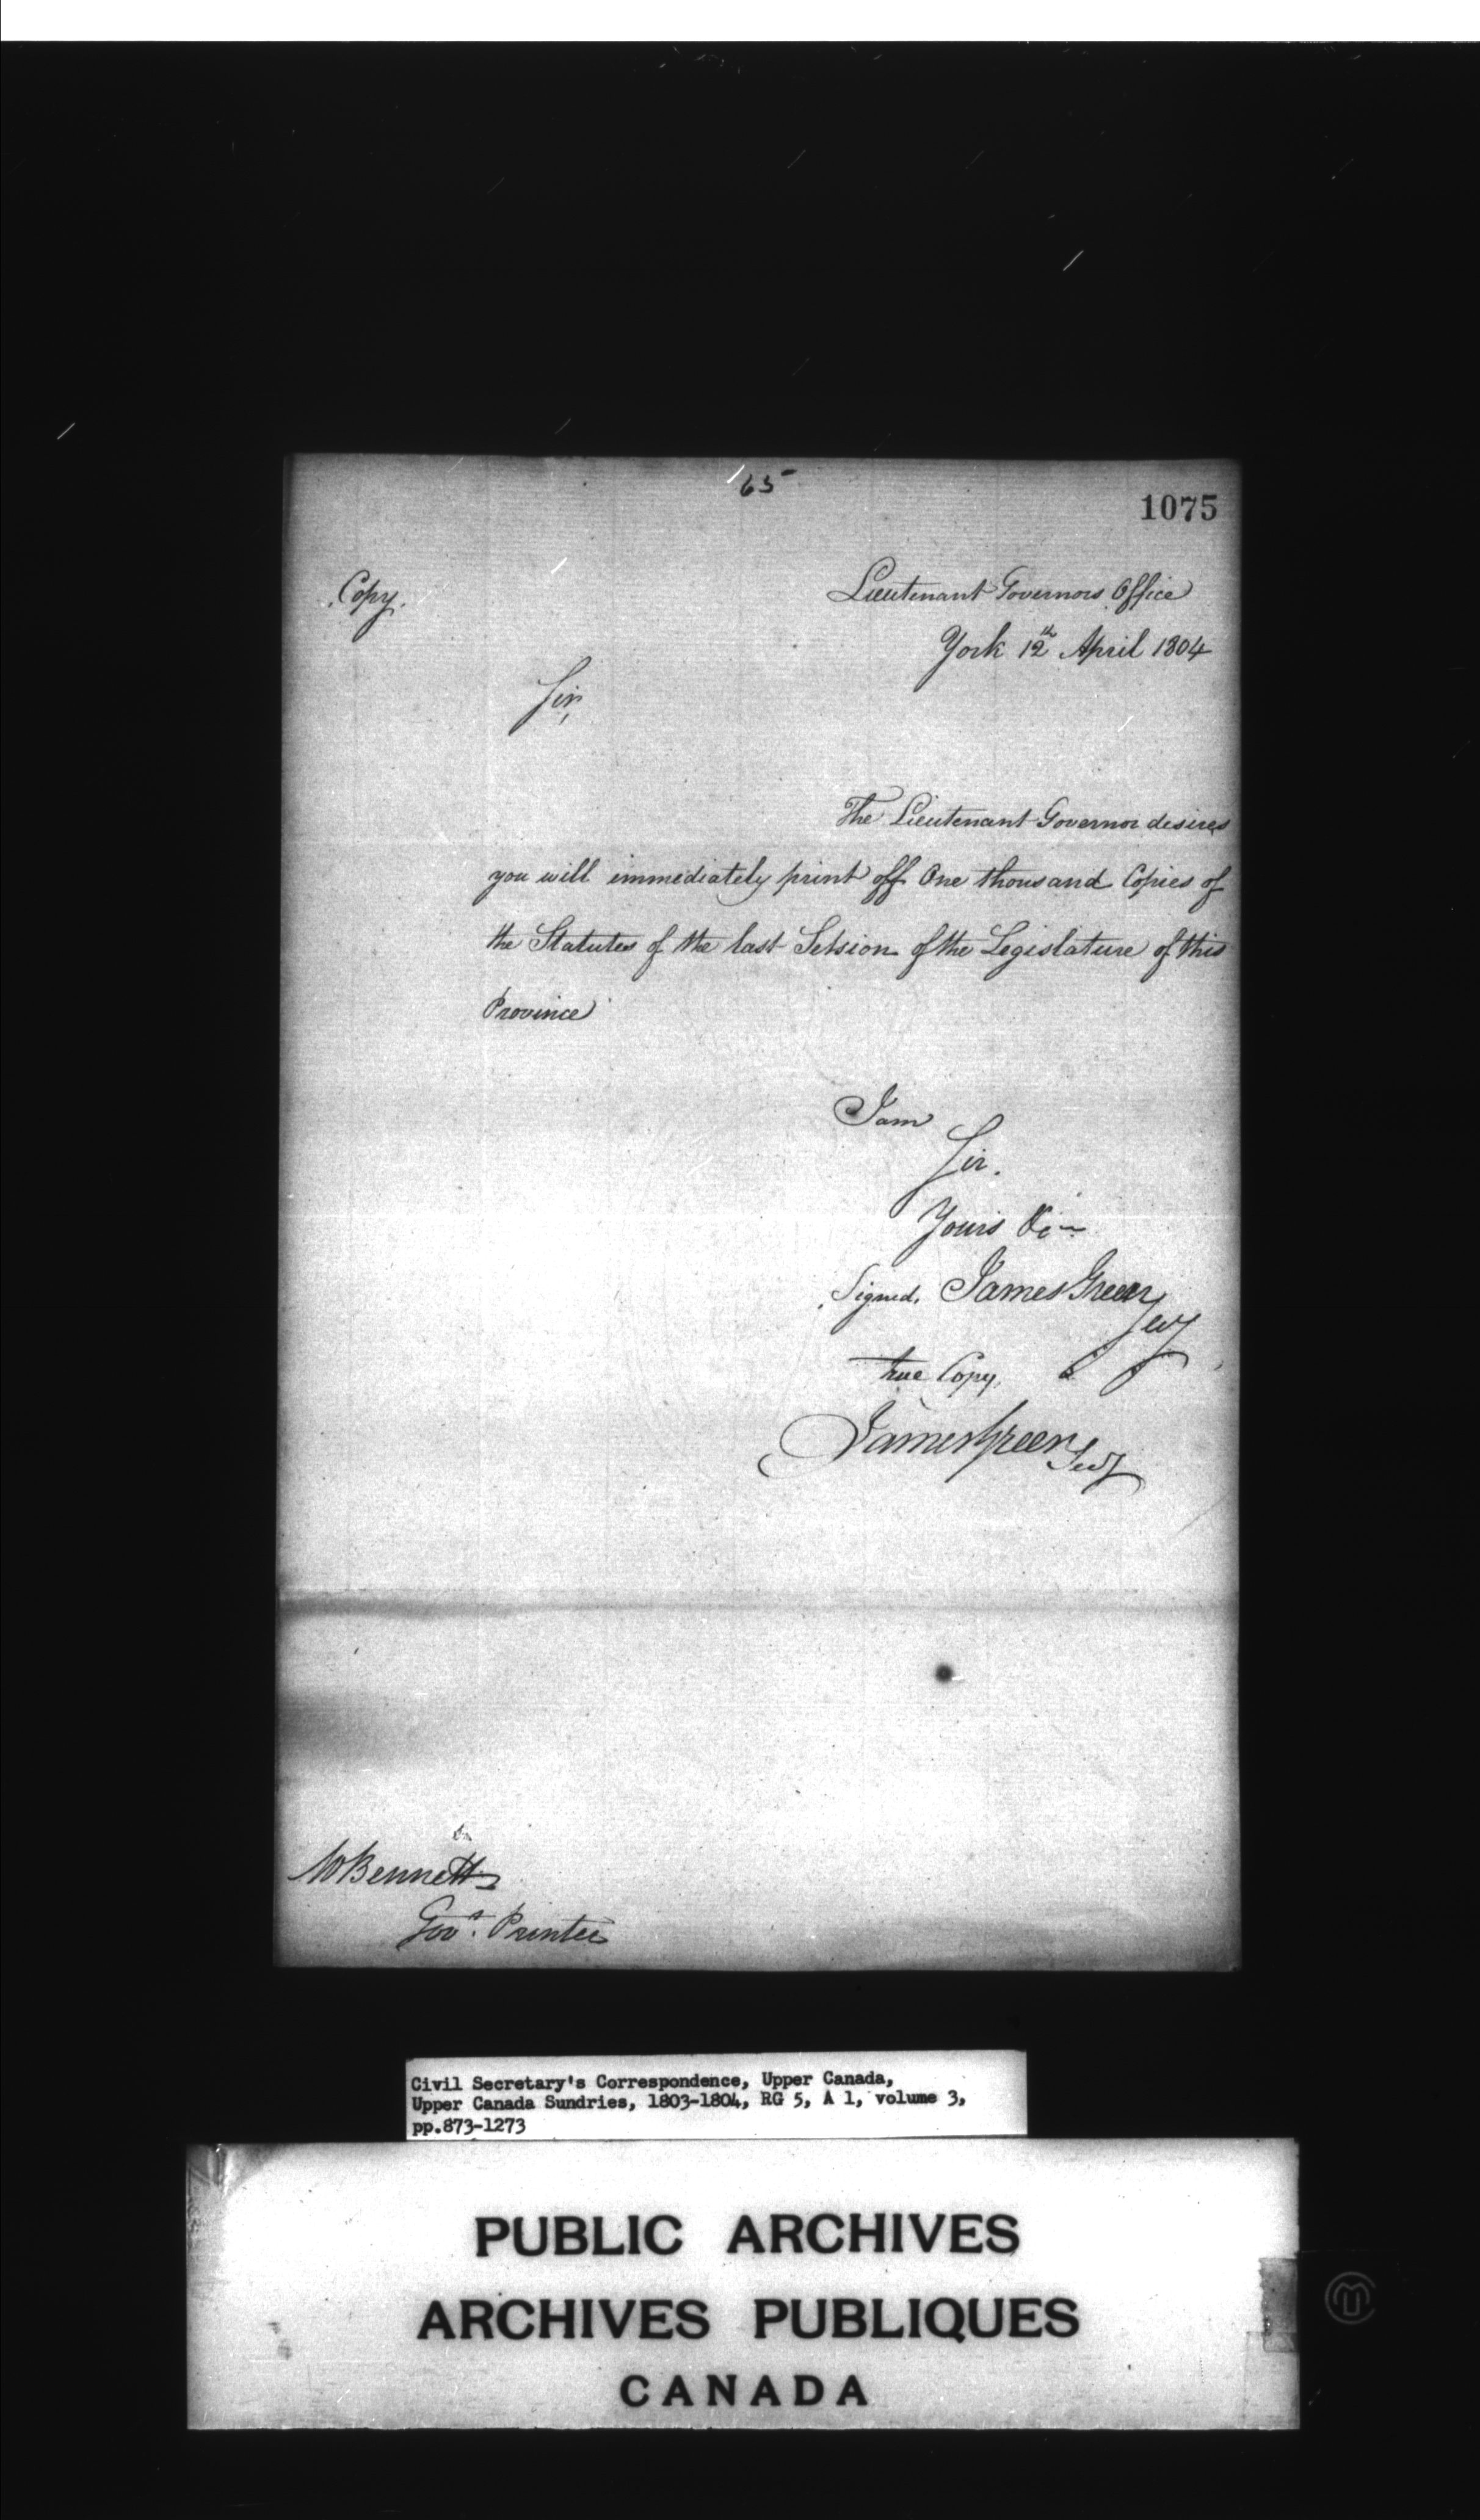 65
1075
Copy.
Lieutenant Governors Office
York 12th April 1804
Sir,
The Lieutenant Governor desires
you will immediately print off One thousand Copies of
the Statutes of the last Session of the Legislature of this
Province
I am
Sir.
Yours &c
Signed. James Green
Secy
true Copy,
James Green Secy
W Bennett
Govt. Printer
Civil Secretary's Correspondence, Upper Canada,
Upper Canada Sundries, 1803-1804, RG 5, A 1, volume 3,
pp.873-1273
PUBLIC ARCHIVES
ARCHIVES PUBLIQUES
CANADA